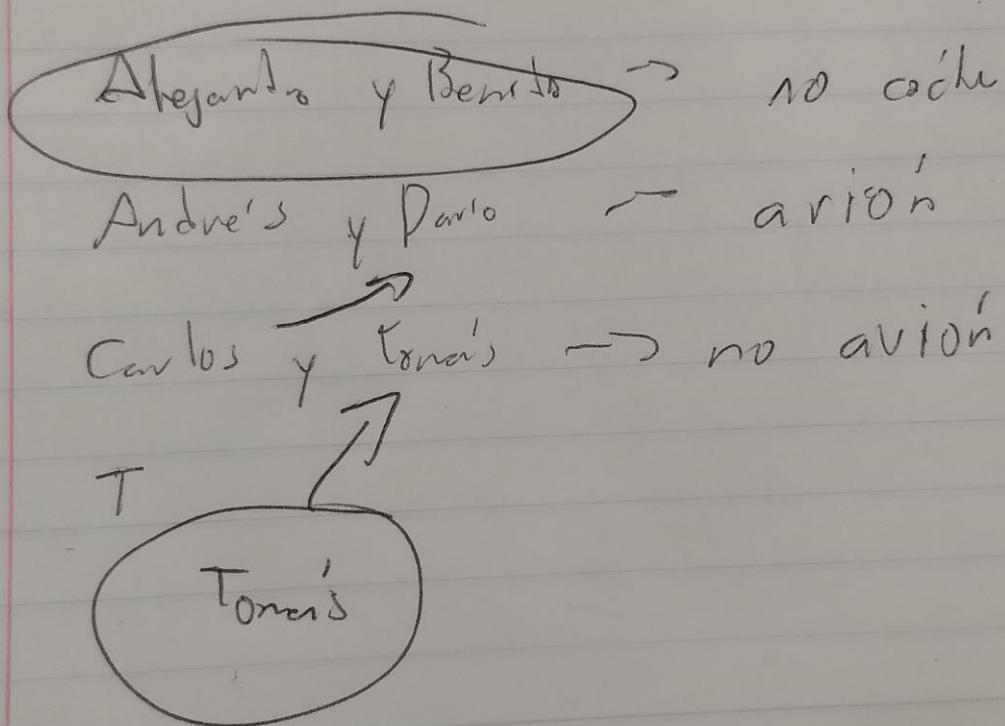 Alejandro y Benito → no coche
Andrés y Darío — avión
Carlos y Tomás → no avión
T
Tomás